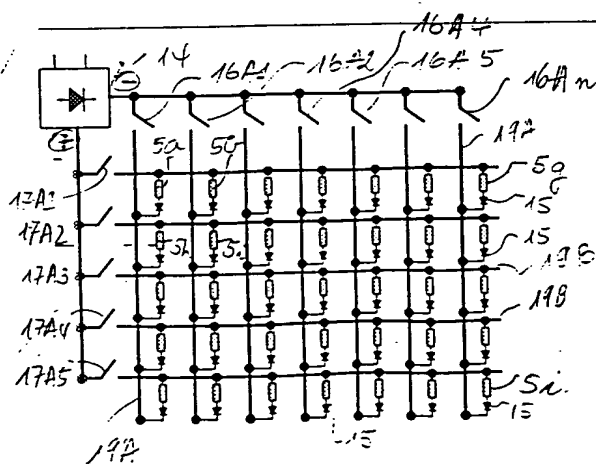 14
16A1
16A2
16A4
16A5
16An
19A
5a
5b
5a
17A1
15
17A2
15
17A3
19B
17A4
19B
17A5
5i
15
19A
15